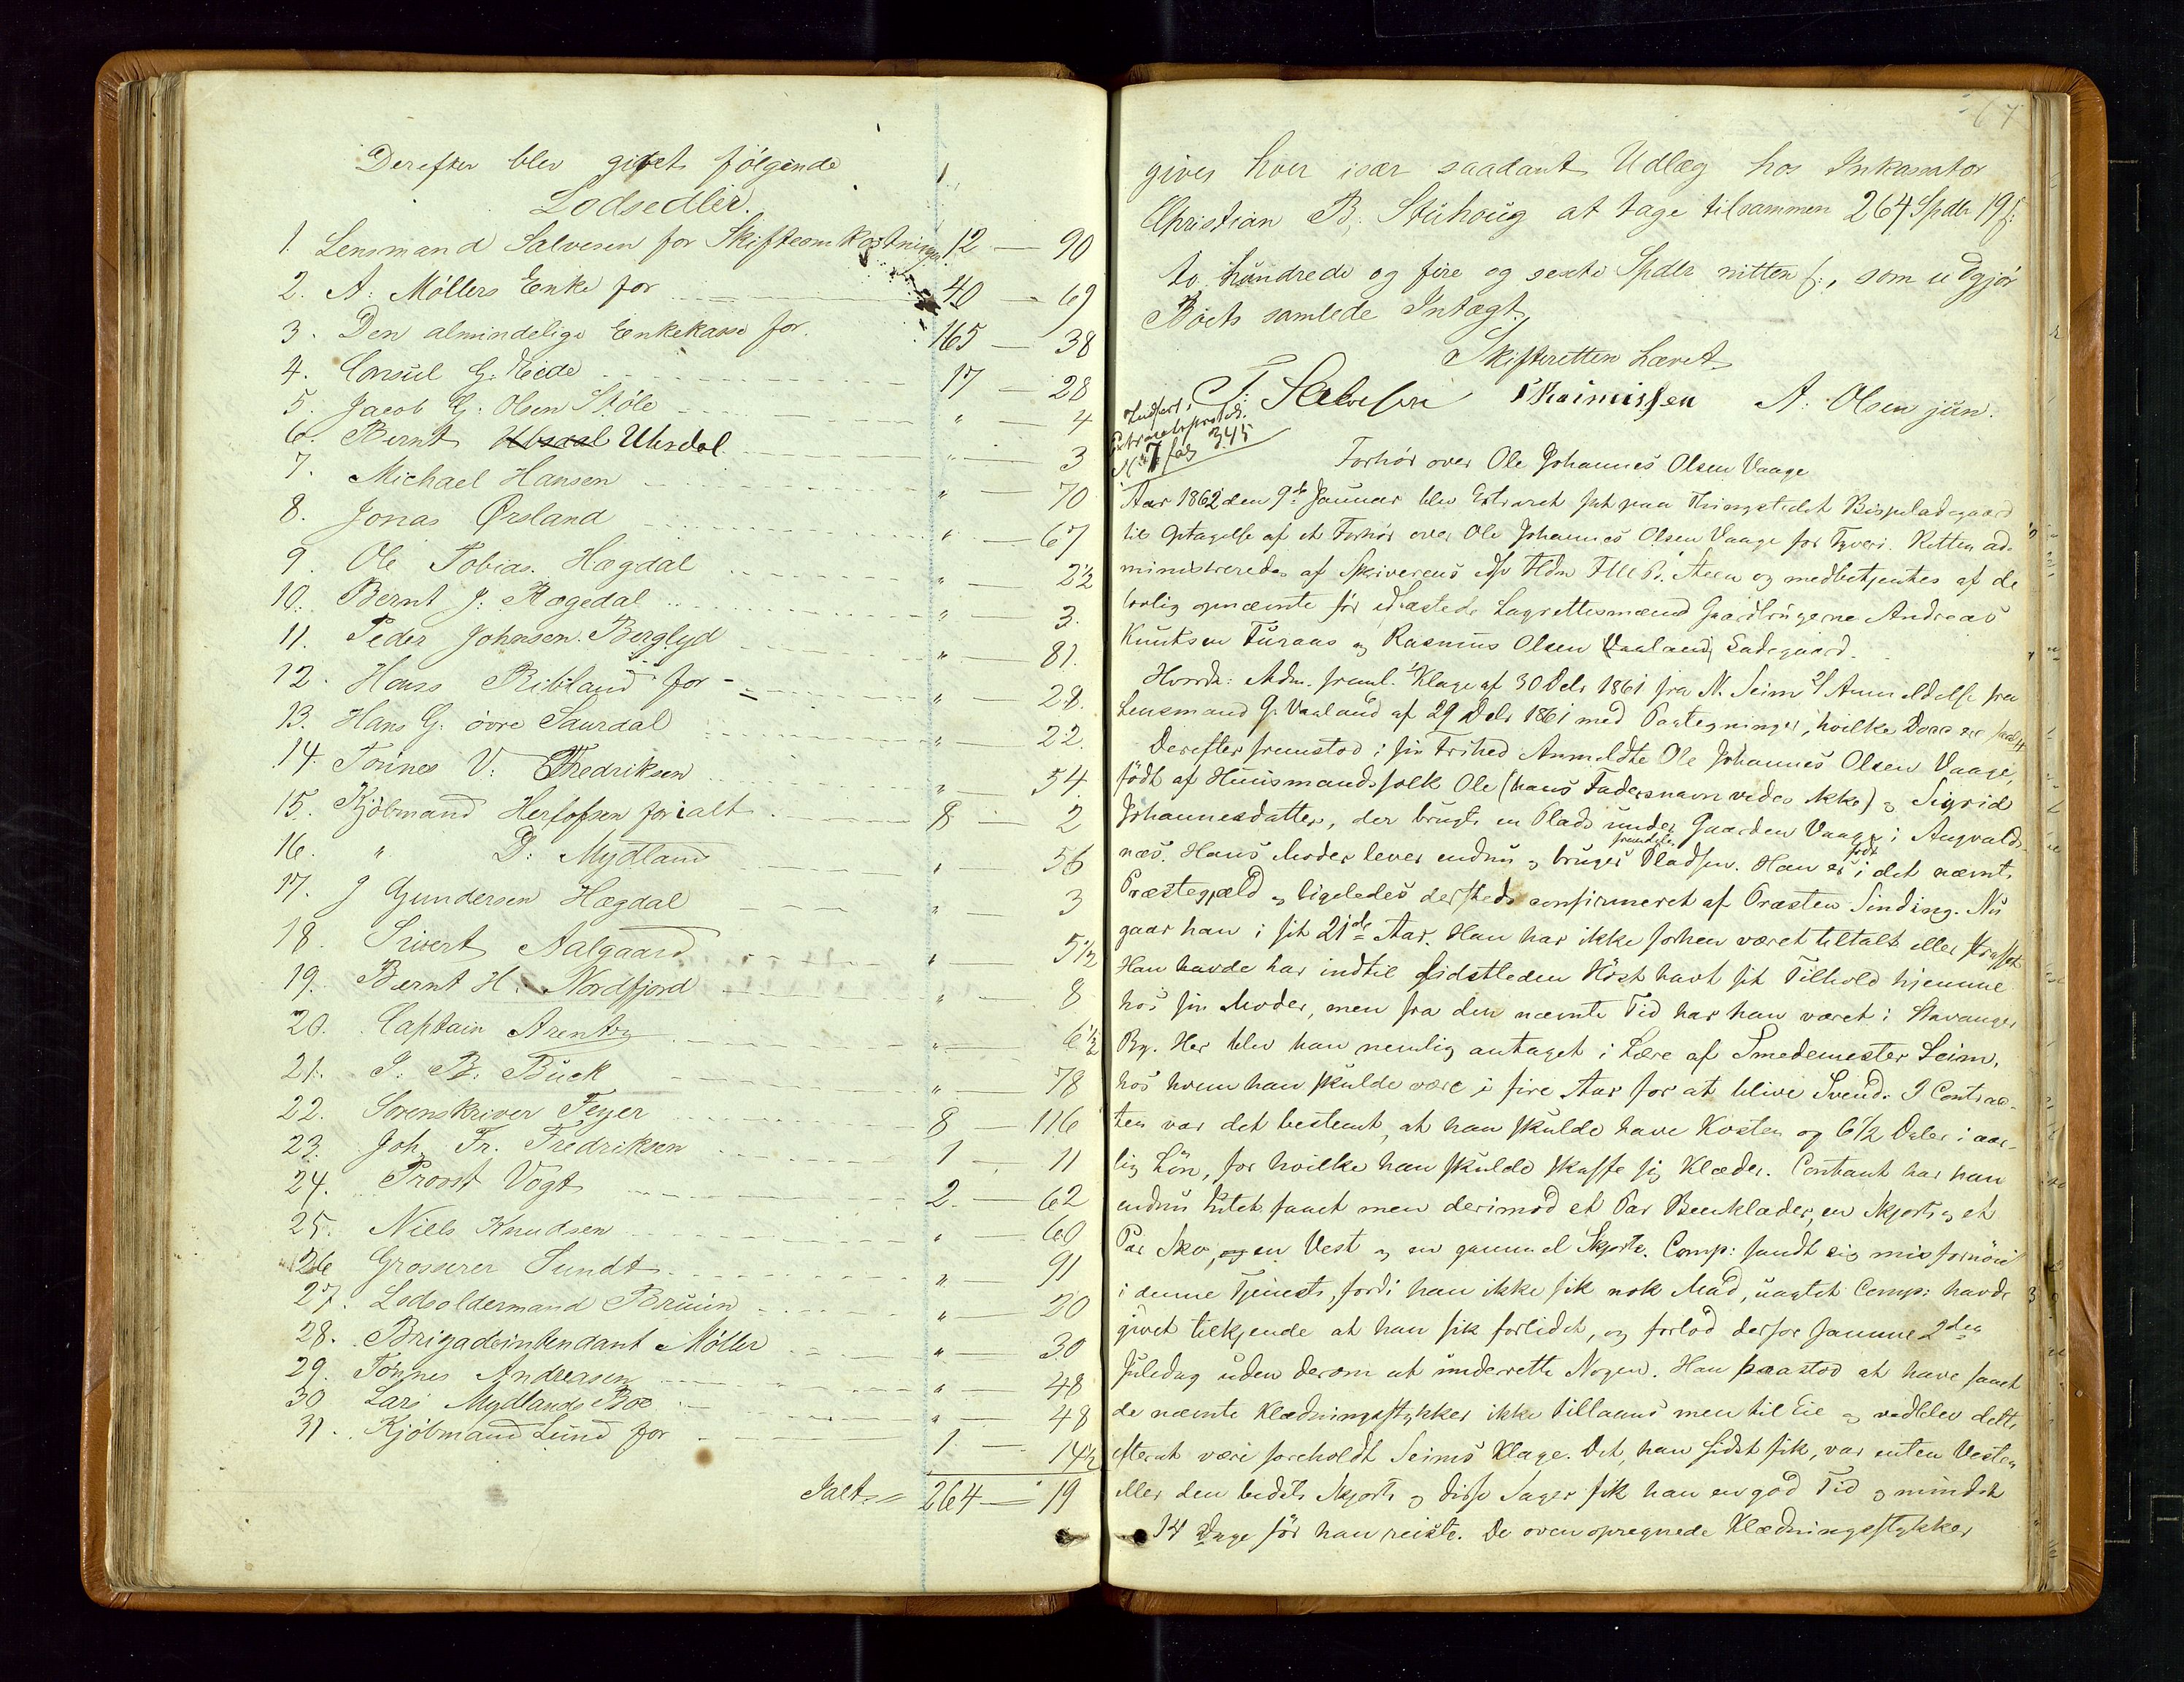 Derefter blev givet følgende
Lodsedler.
1. Lensmand Salvesen for Skifteomkostninger 12 — 90
2. A. Møllers Enke for 40 — 69
3. Den almindelige Enkekasse for 165 — 38
4. Consul G. Eide 17 — 28
5. Jacob G. Olsen Støle " — 4
6. Bernt Uhsdal " — 3
7. Michael Hansen " — 70
8. Jonas Ørsland " — 67
9. Ole Tobias. Hægdal " — 2½
10. Bernt J. Hægedal " — 3.
11. Peder Johnsen. Berglyd " — 81.
12. Hans Ribland for " — 28.
13. Hans G. øvre Saurdal " — 22.
14. Tönnes V. Fredriksen " — 54.
15. Kjöbmand Herlofsen for ialt 8 — 2
16. " D. Mydland " — 56
17. J Gundersen Hægdal " — 3
18. Sivert Aalgaard " — 5½
19. Bernt H. Nordfjord " — 8
20. Captain Arentz " — 6½
21. J. B. Buck " — 78
22. Sorenskriver Feyer 8 — 116
23. Joh. Fr. Fredriksen 1 — 11
24. Provst Vogt 2 — 62
25. Niels Knudsen " — 60
26 Grosserer Sundt " — 91
27. Lodsoldermand Bruun " — 20
28. Brigadeintendant Møller " — 30
29. Tönnes Andreasen " — 48
30 Lars Mydlands Bo " — 48
31. Kjöbmand Lund for 1 — 14½
Ialt = 264 — 19
gives hver især saadant Udlæg hos Inkassator
Christian B. Stuhoug at tage tilsammen 264 Spdlr 19 ß:
to hundrede og fire og sexti Spdlr nitten ß:, som udgjör
Boets samlede Intægt.
Skifteretten hævet
T. Salvesen A. Olsen jun.
Indført i
Extraretsprotok.
No 7 fol 345
Forhör over Ole Johannes Olsen Vaage
Aar 1862 den 9de Januar blev Extraret sat paa Thingstedet Bispeladegaard
til Optagelse af et Forhör over Ole Johannes Olsen Vaage for Tyveri. Retten ad-
ministreredes af Skriverens Steen og medbetjentes af de
lovlig opnævnte før edfæstede Lagrettesmænd Gaardbrugerne Andreas
Knutsen Turaas og Rasmus Olsen Vaaland Ladegaard.
Hvorda: Adm. freml. 1/ Klage af 30 Debr 1861 fra N. Seim 2/ Anmeldelse fra
Lensmand G. Vaaland af 29 Debr 1861 med Paategninger, hvilke Docc er
Derefter fremstod i sin Frihed Anmeldte Ole Johannes Olsen Vaage,
født af Huusmandsfolk Ole (hans Fadersnavn vides ikke) og Sigrid
Johannesdatter, der brugte en Plads under Gaarden Vaage i Augvalds-
næs. Hans Moder lever endnu og bruger fremdeles Pladsen. Han er født i det nævnte
Præstegjæld og ligeledes dersteds confirmeret af Præsten Sinding. Nu
gaar han i sit 21de Aar. Han har ikke forhen været tiltalt eller straffet
Han havde har indtil sidstleden Höst havt sit Tilhold hjemme
hos sin Moder, men fra den nævnte Tid har han været i Stavanger
By. Her blev han nemlig antaget i Lære af Smedemester Seim,
hos hvem han skulde være i fire Aar for at blive Svend. I Contrac-
ten var det bestemt, at han skulde have Kosten og 6½ Daler i aar-
lig Lön, for hvilke han skulde skaffe sig Klæder. Contant har han
endnu Intet faaet men derimod et Par Beenklæder, en Skjorte og et
Par Sko, og en Vest og en gammel Skjorte. Comp: fandt sig misfornöiet
i denne Tjeneste, fordi han ikke fik nok Mad, uagtet Comp: havde
givet tilkjende at han fik forlidet, og forlod derfor samme 2den
Juledag uden derom at underrette Nogen. Han paastod at have faaet
de nævnte Klædningsstykker ikke tillaans men til Eie og vedblev dette
efterat være foreholdt Seims Klage. Det, han sidst fik, var enten Vesten
eller den bedste Skjorte og disse Sager fik han en god Tid og mindst
14 Dage för han reiste. De oven opregnede Klædningsstykker